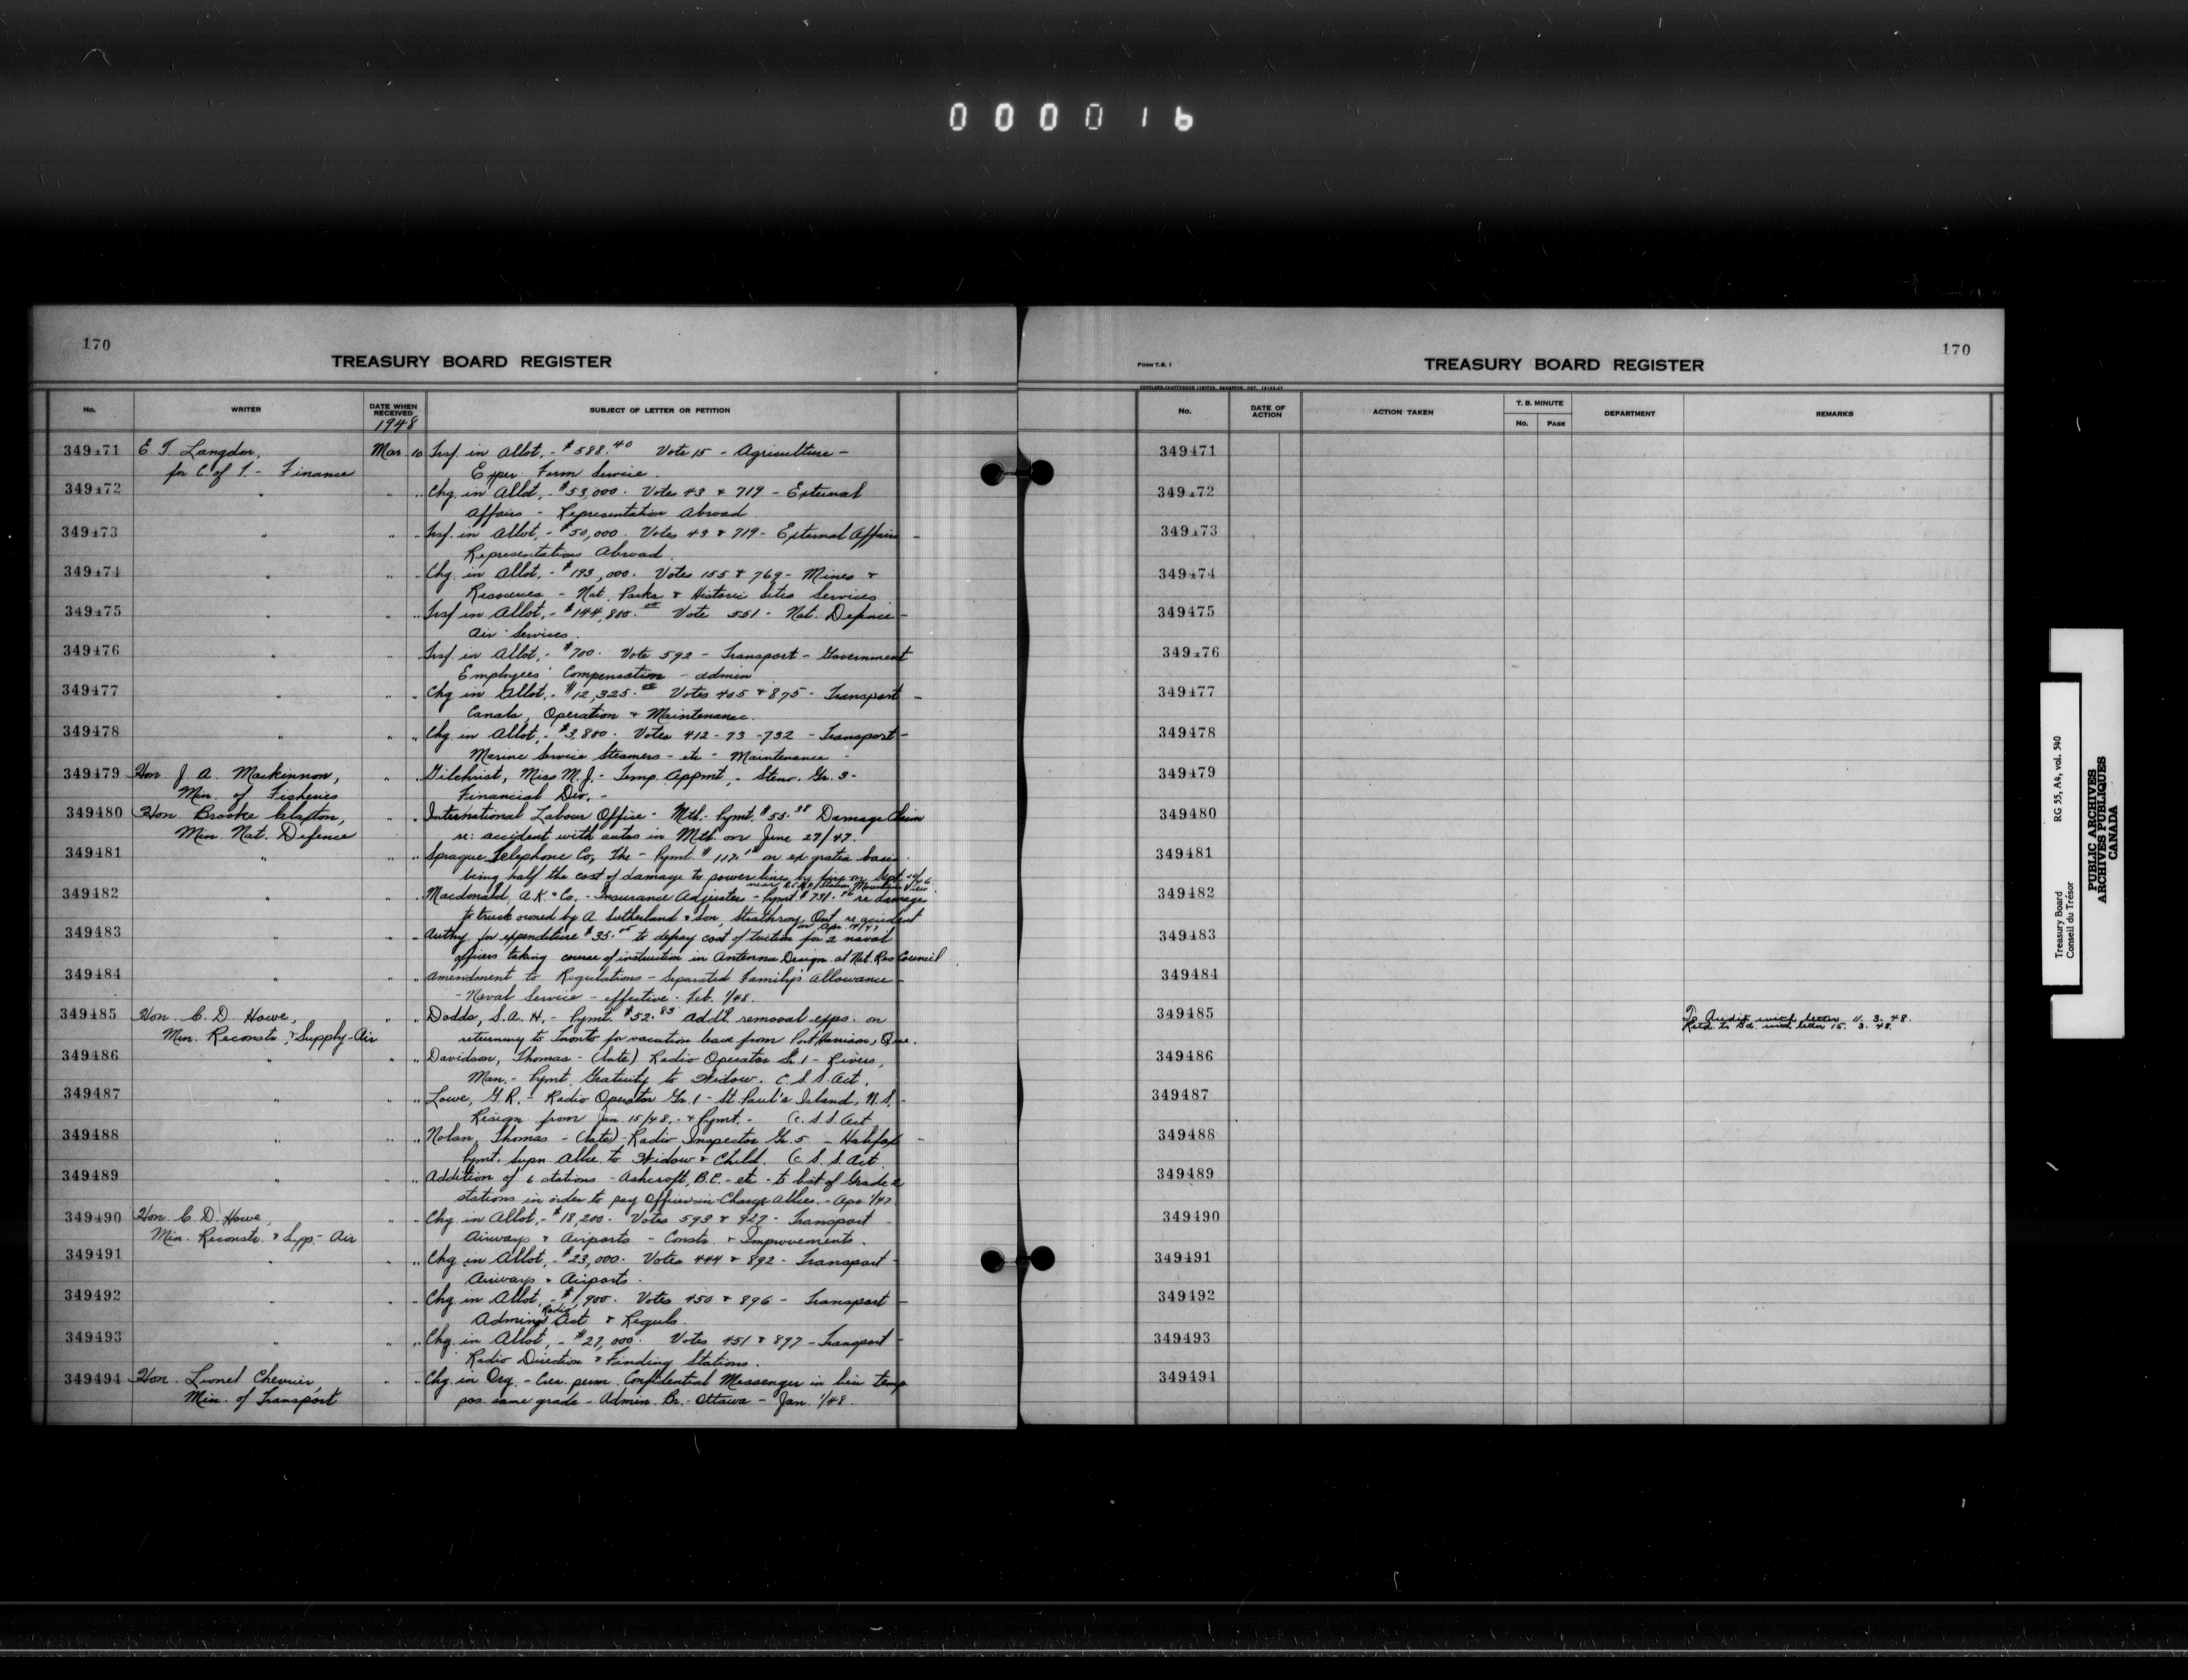 000016
170
TREASURY BOARD REGISTER
No.
WRITER
DATE WHEN RECEIVED
1948
SUBJECT OF LETTER OR PETITION
349471 E T. Langdon, Mar. 10 Trsf. in Allot. - $588.40 Vote 15 - Agriculture -
for C. of T. - Finance Exper. Farm Service.
349472 " " " Chg. in Allot. - $53,000. Votes 43 & 719 - External
Affairs - Representation Abroad
349473 " " " Trsf. in Allot. - $50,000. Votes 43 & 719 - External Affairs -
Representations Abroad.
349474 " " " Chg. in Allot. - $193,000. Votes 155 & 769 - Mines &
Resources - Nat. Parks & Historic Sites Services
349475 " " " Trsf in Allot. - $144,800.00 Vote 551 - Nat. Defence -
Air Services.
349476 " " " Trsf. in Allot. - $700. Vote 592 - Transport - Government
Employees' Compensation - admin
349477 " " " Chg. in Allot. - $12,325.00 Votes 405 & 875 - Transport -
Canals, Operation & Maintenance.
349478 " " " Chg. in Allot. - $3,800. Votes 412-73-732 - Transport -
Marine Service Steamers - etc - Maintenance -
349479 Hon. J. A. Mackinnon, " " Gilchrist, Miss M. J. - Temp. Appmt. - Steno. Gr. 3 -
Min. of Fisheries Financial Div. -
349480 Hon. Brooke Claxton, " " International Labour Office - Mtl. - Pymt. $55.38 Damage Claim
Min. Nat. Defence re: accident with autos in Mtl. on June 27/47.
349481 " " " Sprague Telephone Co, The - Pymt. $117. on ex gratia basis
being half the cost of damage to power line by fire on Sept.
near R.C.A.F. Station, Mountain View.
349482 " " " Macdonald, A. K. & Co. - Insurance Adjuster - Pymt. $731. re damages
to truck owned by A. Sutherland & Son, Strathroy, Ont. re accident
on Apr. 14/47
349483 " " " Authy. for expenditure $35.00 to defray cost of tuition for 2 naval
officers taking course of instruction in Antenna Design at Nat. Res Council
349484 " " " Amendment to Regulations - Separated Family's Allowance
- Naval Service - effective - Feb. 1/48.
349485 Hon. C. D. Howe, " " Dodds, S. A. H. - Pymt. $52.83 add'l removal exps. on
Min. Reconstr. & Supply-Air returning to Toronto for vacation leave from Port Harrison, Que.
349486 " " " Davidson, Thomas - (late) Radio Operator Gr. 1 - Rivers,
Man. - Pymt. Gratuity to Widow. C. S. S. Act.
349487 " " " Lowe, G. R. - Radio Operator Gr. 1 - St. Paul's Island, N. S. -
Resign. from Jan 15/48. & Pymt. - C. S. S. Act
349488 " " " Nolan, Thomas - (late) - Radio Inspector Gr. 5 - Halifax -
Pymt. Supn Allce. to Widow & Child. C. S. S. Act.
349489 " " " Addition of 6 stations - Ashcroft, B.C. - etc - to list of Grade
stations in order to pay Officer-in-Charge Allces. - Apr. 1/47.
349490 Hon. C. D. Howe, " " Chg. in Allot. - $18,200. Votes 593 & 927 - Transport -
Min. Reconstr. & Supp. - Air Airways & Airports - Constr. & Improvements.
349491 " " " Chg. in Allot. - $23,000. Votes 444 & 892 - Transport -
Airways & Airports -
349492 " " " Chg. in Allot. - $1,900. Votes 450 & 896 - Transport -
Radio
Admin Act & Reguls.
349493 " " " Chg. in Allot. - $27,000. Votes 451 & 897 - Transport -
Radio Direction & Finding Stations.
349494 Hon. Lionel Chevrier, " " Chg. in Org. - Cre. perm. Confidential Messenger in lieu temp
Min. of Transport pos. same grade - Admin. Br. - Ottawa - Jan. 1/48.
FORM T.B. 1
TREASURY BOARD REGISTER
170
No.
DATE OF ACTION
ACTION TAKEN
T. B. MINUTE
No.
PAGE
DEPARTMENT
REMARKS
349471
349472
349473
349474
349475
349476
349477
349478
349479
349480
349481
349482
349483
349484
349485 To Audit with letter 11. 3. 48.
Retd. to Bd. with letter 15. 3. 48.
349486
349487
349488
349489
349490
349491
349492
349493
349494
Treasury Board RG 55, A4, vol. 540
Conseil du Trésor
PUBLIC ARCHIVES
ARCHIVES PUBLIQUES
CANADA